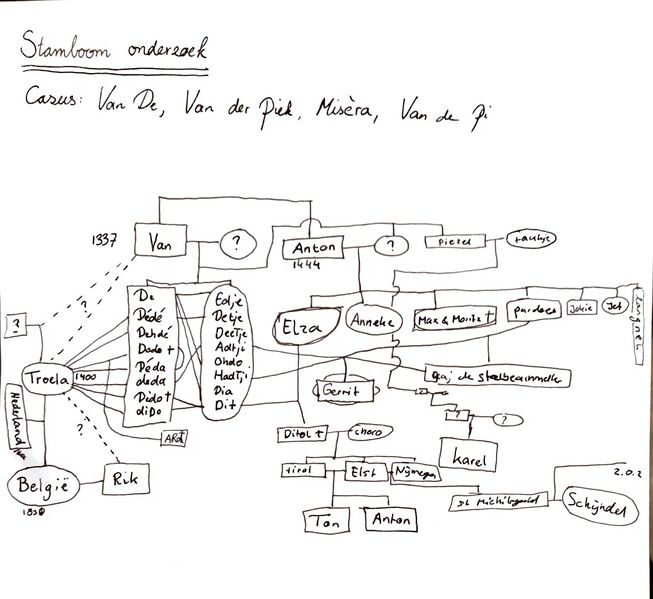 Stamboom onderzoek
Casus: Van De, Van der Piek, Misèra, Van de Pi
1337
Van
?
Anton
1444
?
Piezel
?
De
Dédé
Dehdé
Dodo †
Déda
deda
Dido †
diDo
Edje
Detje
Deetje
Adtji
Ohdo
Hadtji
Dia
Dit
Elza
Anneke
Max & Moritz †
pardoes
Jokie
Jet
Langnek
?
Troela
1400
Nederland
?
België
1830
Rik
Gerrit
Ditol †
choco
?
?
karel
tirol
Elst
Nijmegen
Ton
Anton
St Michielsgestel
2.0.2
Schijndel